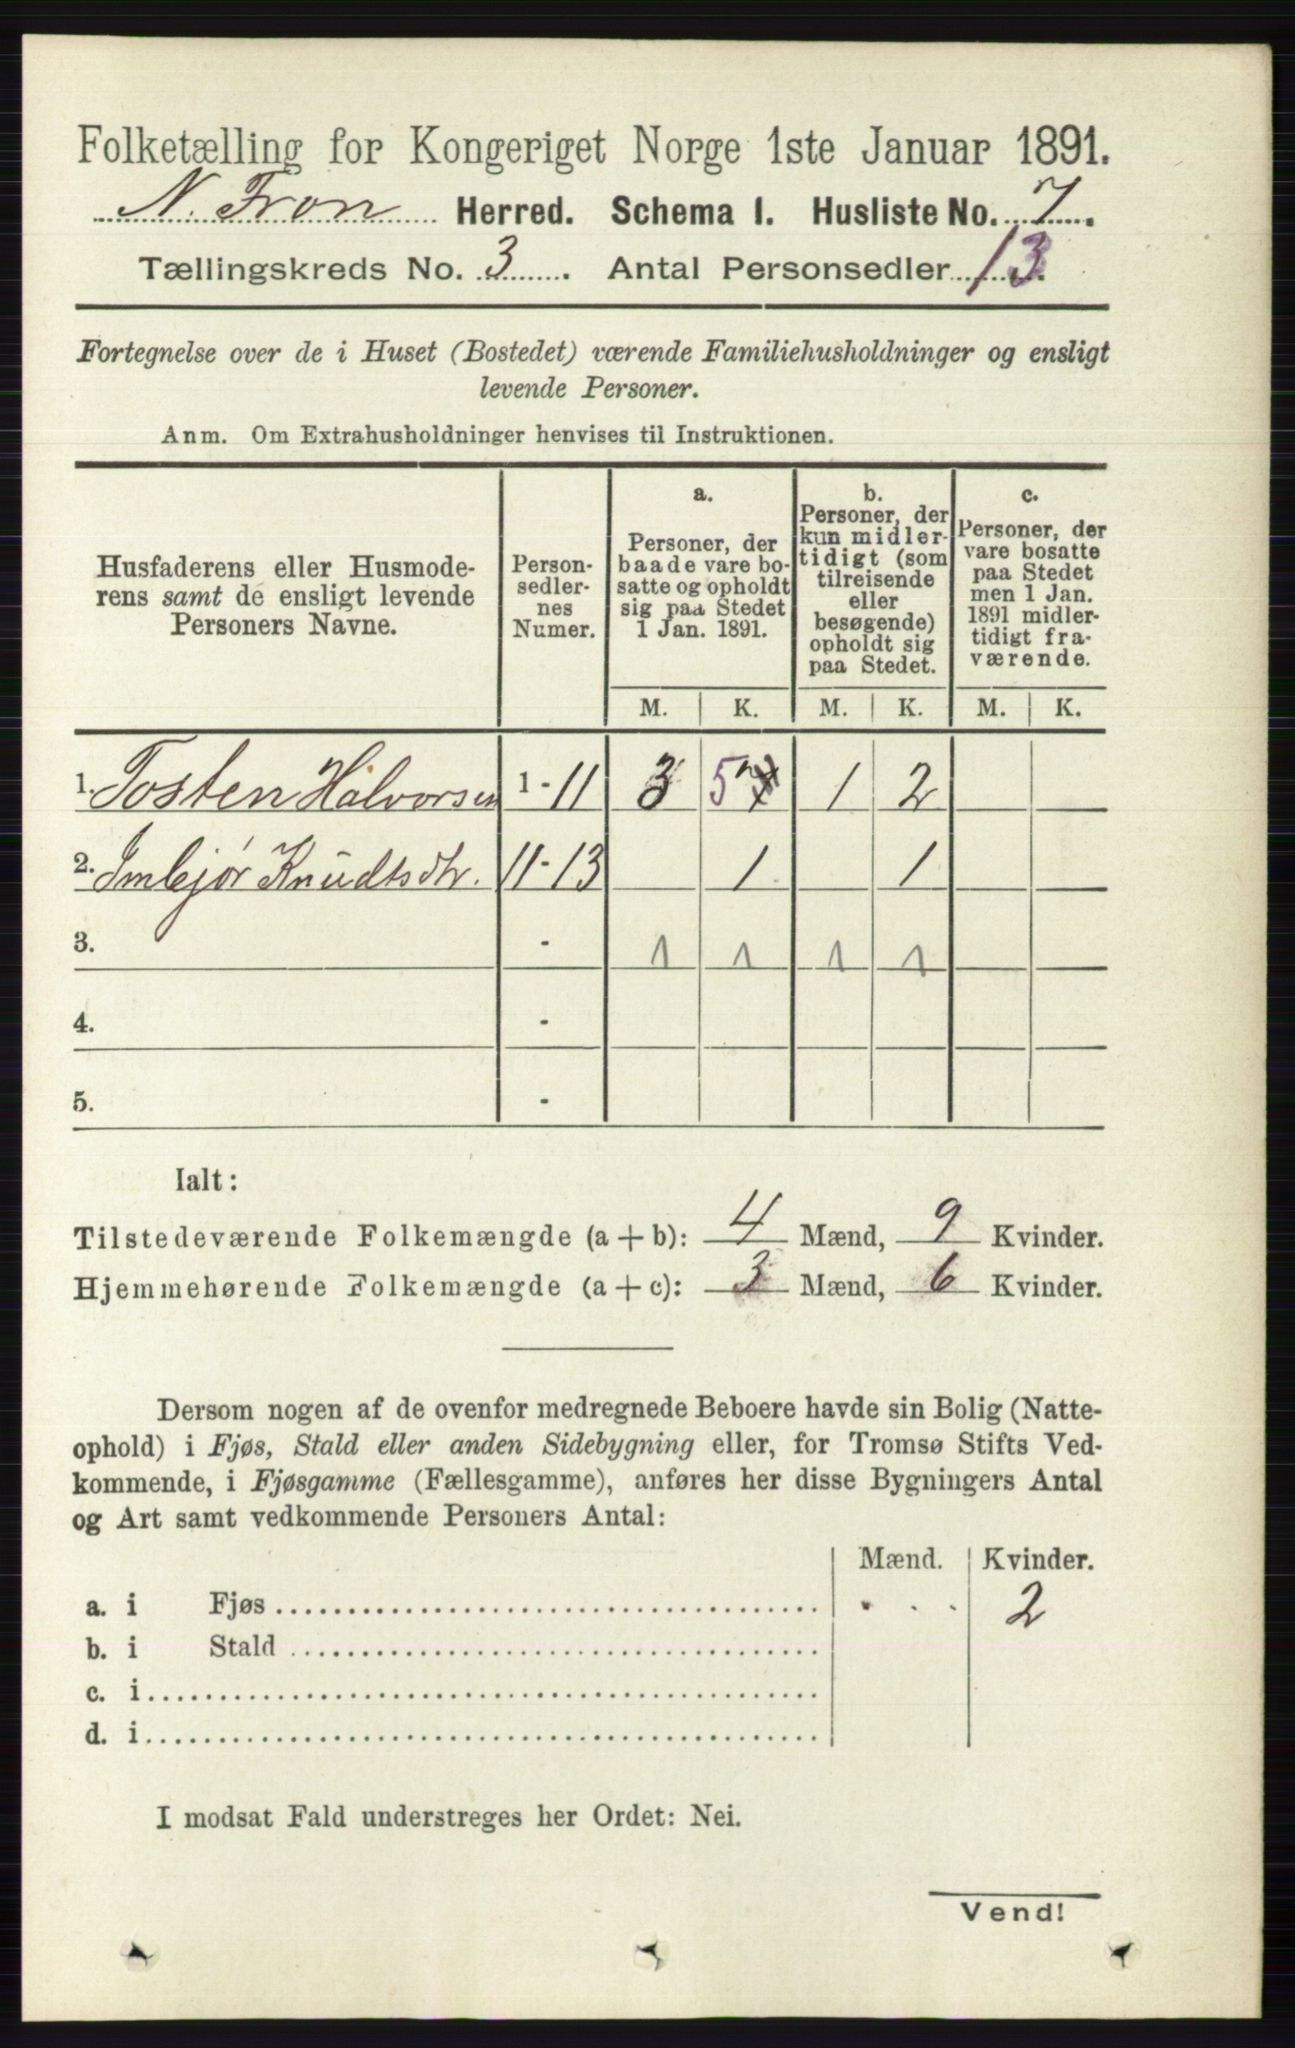 Folketælling for Kongeriget Norge 1ste Januar 1891.
N. Fron Herred. Schema I. Husliste No. 7.
Tællingskreds No. 3. Antal Personsedler 13.
Fortegnelse over de i Huset (Bostedet) værende Familiehusholdninger og ensligt
levende Personer.
Anm. Om Extrahusholdninger henvises til Instruktionen.
Husfaderens eller Husmode-
rens samt de ensligt levende
Personers Navne.
Person-
sedler-
nes
Numer.
a.
Personer, der
baade vare bo-
satte og opholdt
sig paa Stedet
1 Jan. 1891.
b.
Personer, der
kun midler-
tidigt (som
tilreisende
eller
besøgende)
opholdt sig
paa Stedet.
c.
Personer, der
vare bosatte
paa Stedet
men 1 Jan.
1891 midler-
tidigt fra-
værende.
M. K. M. K. M. K.
1. Tosten Halvorsen 1-11 3 5 1 2
2. Imbjør Knudtsdtr. 11-13 1 1
3. - 1 1 1 1
4. -
5. -
Ialt:
Tilstedeværende Folkemængde (a+b): 4 Mænd, 9 Kvinder.
Hjemmehørende Folkemængde (a+c): 3 Mænd, 6 Kvinder.
Dersom nogen af de ovenfor medregnede Beboere havde sin Bolig (Natte-
ophold) i Fjøs, Stald eller anden Sidebygning eller, for Tromsø Stifts Ved-
kommende, i Fjøsgamme (Fællesgamme), anføres her disse Bygningers Antal
og Art samt vedkommende Personers Antal:
Mænd. Kvinder.
a. i Fjøs 2
b. i Stald
c. i
d. i
I modsat Fald understreges her Ordet: Nei.
Vend!